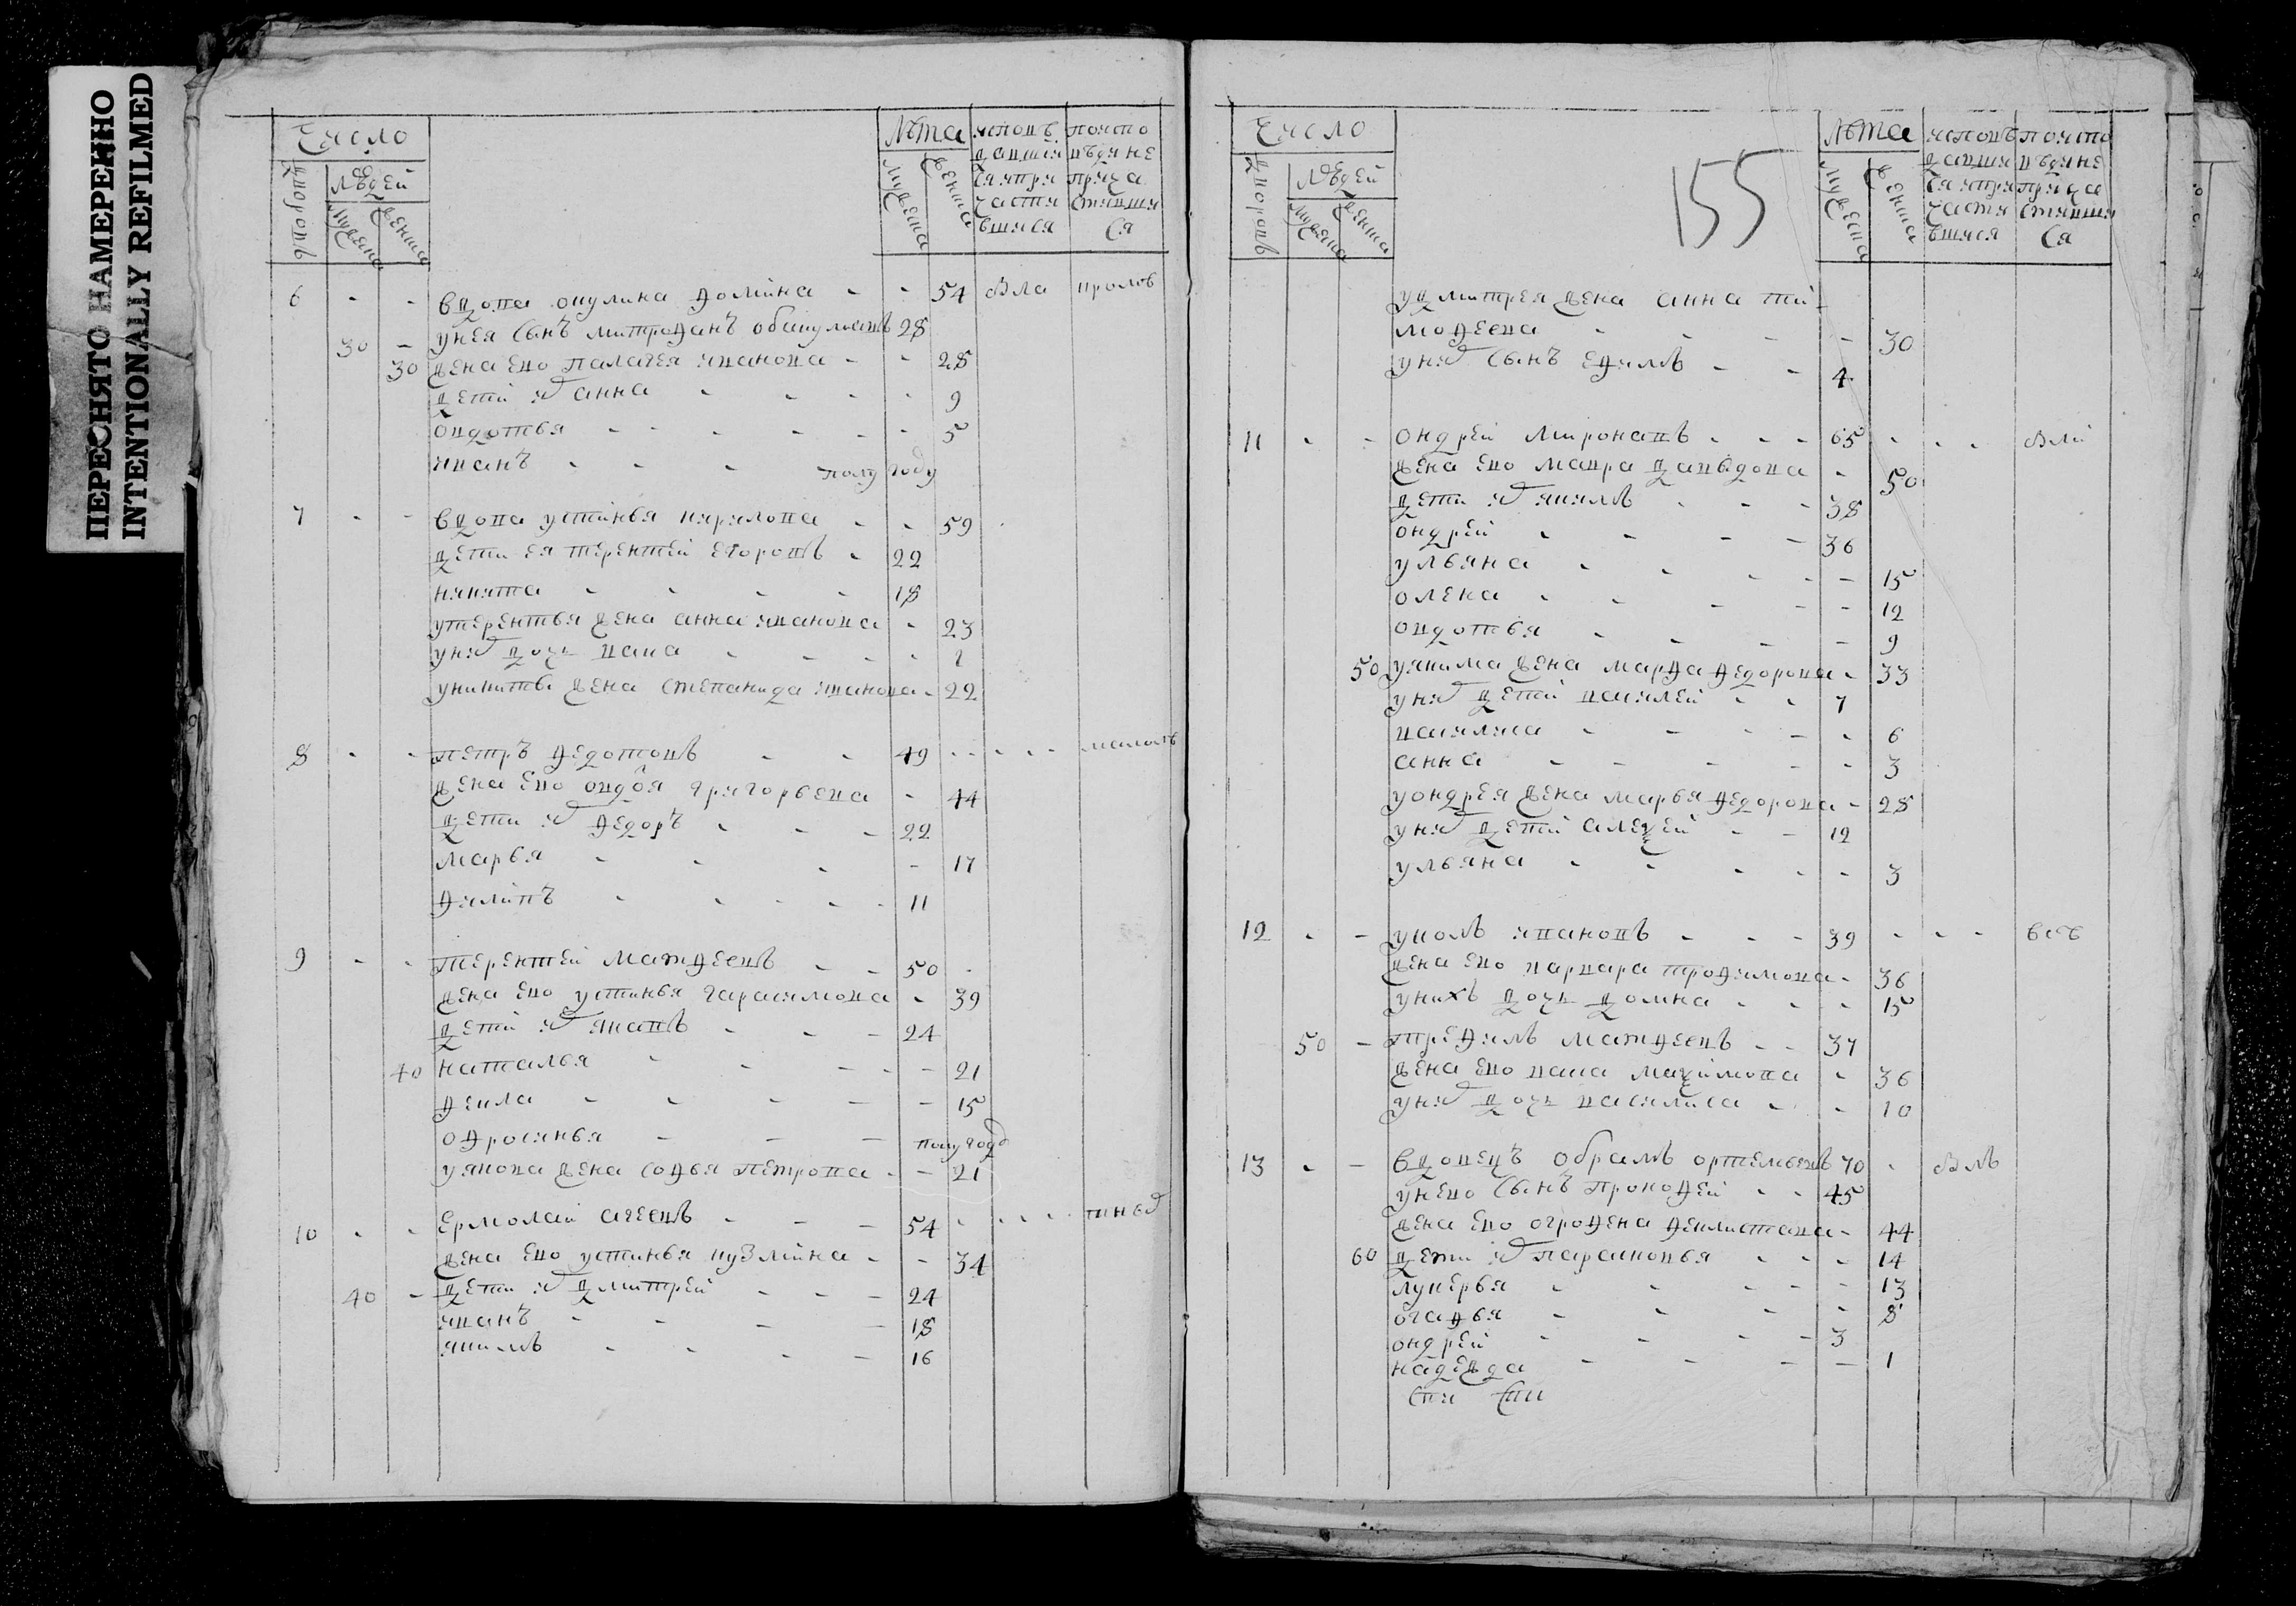 ПЕРЕСНЯТО НАМЕРЕННО
INTENTIONALLY REFILMED
Число
дворовъ
людей
мужеска
женска
Лѣта
мужеска
женска
исповѣ
давшия
ся и при
части
вшияся
по испо
вѣди не
прича
стивши
ся
6 - - вдова окулина фомина - - 54
30 - у нея сынъ митрофанъ 28
30 жена ево палагея иванова - - 28
дети их анна - - - - 9
овдотья - - - - - 5
иванъ - - - полу году
7 - - вдова устинья кирилова - - 59
дети ея терентей егоровъ - 22
никита - - - - 18
у терентья жена анна иванова - 23
у них дочь - - - -
у никиты жена степанида иванова - 22
8 - - петръ федотовъ - - 49
жена ево овдотя григорьева - 44
дети их федоръ - - - 22
марья - - - - 17
филипъ - - - - - 11
9 - - терентей матфеевъ - - 50
жена ево устинья гарасимова - 39
дети их яковъ - - - 24
40 наталья - - - - - 21
фекла - - - - - 15
офросинья - - - полугоду
у якова жена софья петрова - - 21
10 - - ермолай агеевъ - - - 54
жена ево устинья кузмина - - 34
40 - дети их дмитрей - - - 24
иванъ - - - - 18
якимъ - - - - 16
155
Число
дворовъ
людей
мужеска
женска
Лѣта
мужеска
женска
исповѣ
давшия
ся и при
части
вшияся
по испо
вѣди не
прича
стивши
ся
у дмитрея жена анна ти
мофеева - - - - 30
у них сынъ - - 4
11 - - ондрей мироновъ - - - 65
жена ево мавра давыдова - 50
дети их якимъ - - - 38
ондрей - - - - 36
ульяна - - - - - 15
олена - - - - - 12
овдотья - - - - 9
50 у якима жена марфа федорова - 33
у них дети василей - - 7
василиса - - - - - 6
анна - - - - - 3
у ондрея жена марья федорова - 28
у них дети алексей - - 12
ульяна - - - - - 3
12 - - ивановъ - - - 39 - - - всѣ
жена ево варвара трофимова - 36
у нихъ дочь домна - - - 15
50 - трефилъ матфеевъ - - 37
жена ево васа максимова - 36
у них дочь василиса - - 10
13 - - вдовецъ обрамъ ортемьевъ 70
у нево сынъ прокофей - - 45
жена ево огрофена феклистова - 44
60 дети их парасковья - - - 14
лукерья - - - - - 13
огафья - - - - 8
ондрей - - - - 3
надежда - - - - 1